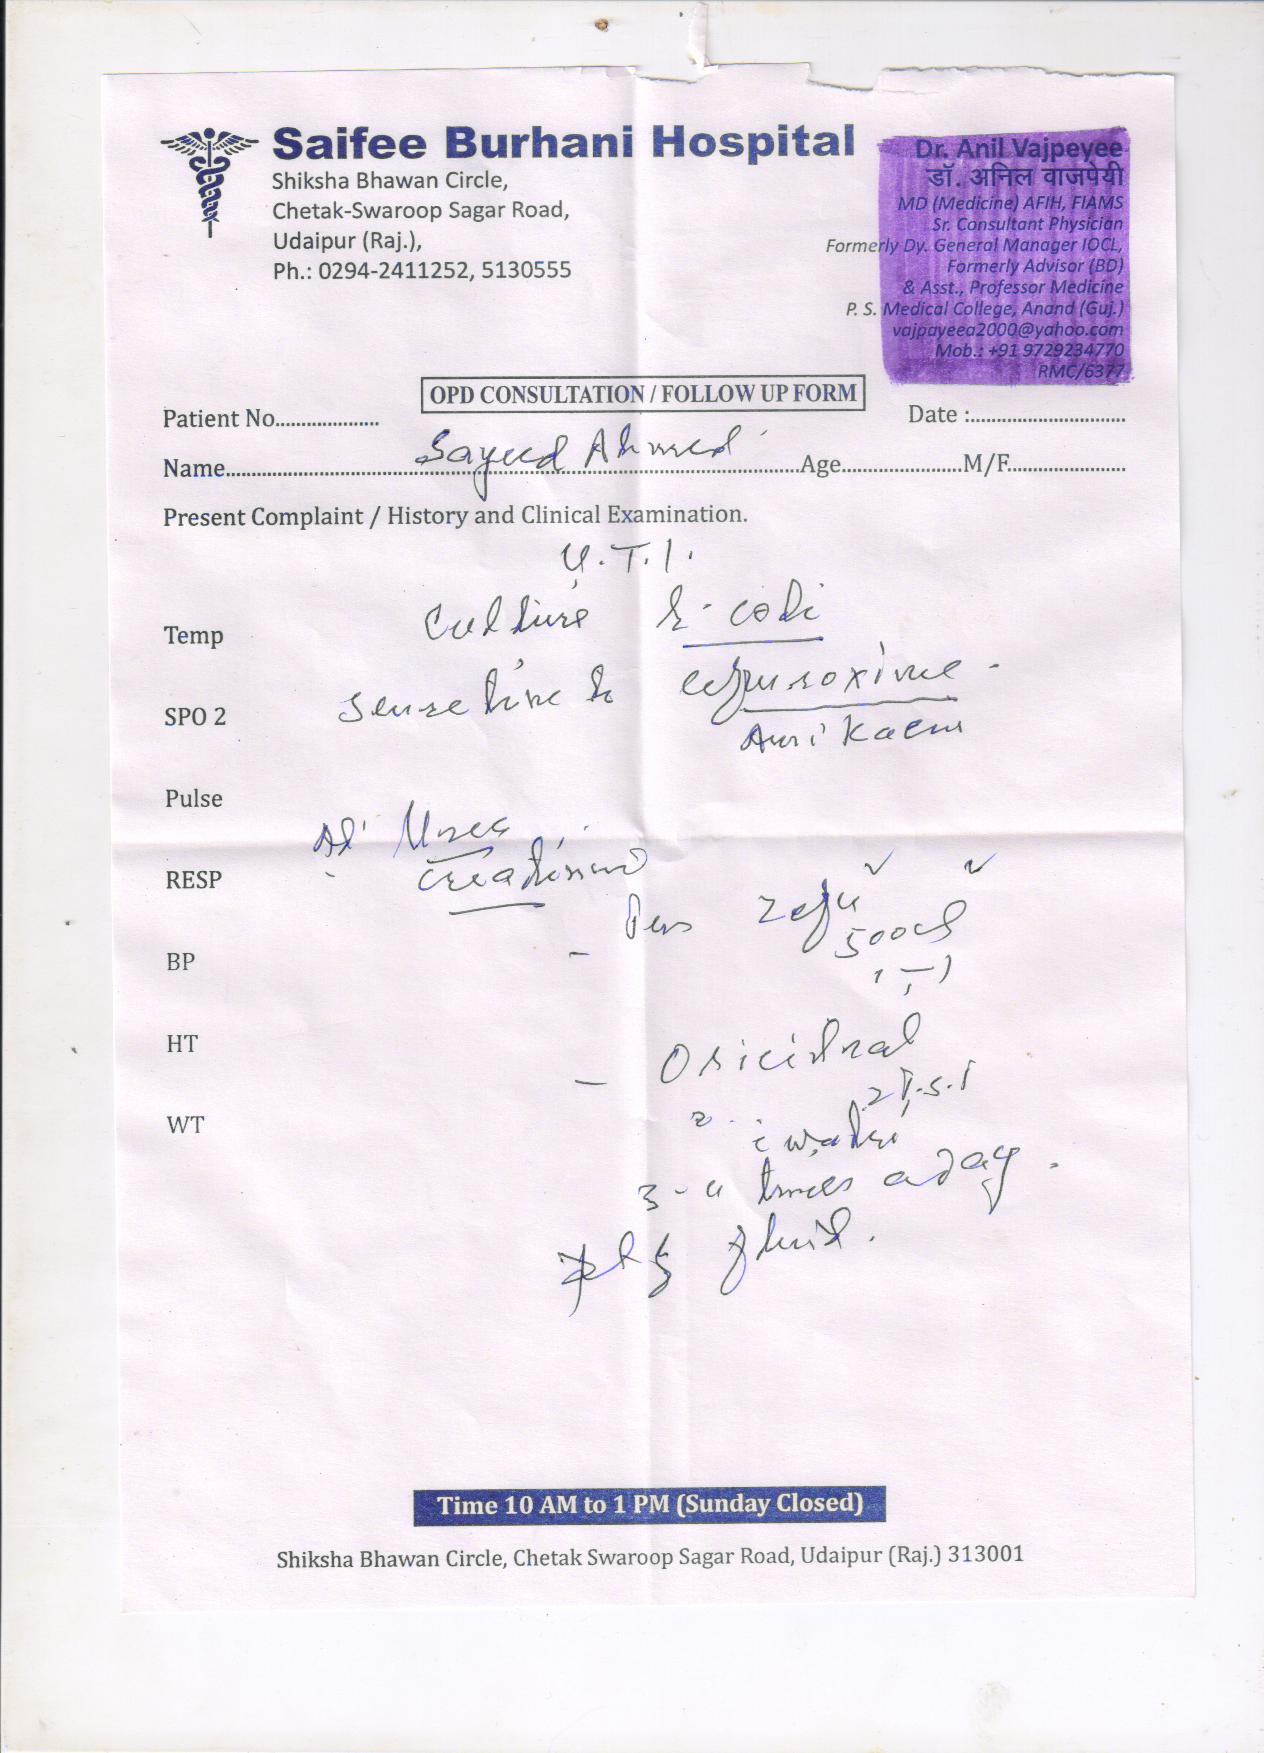 Saifee Burhani Hospital
Shiksha Bhawan Circle,
Chetak-Swaroop Sagar Road,
Udaipur (Raj.),
Ph.: 0294-2411252, 5130555
Dr. Anil Vajpeyee
डॉ. अनिल वाजपेयी
MD (Medicine) AFIH, FIAMS
Sr. Consultant Physician
Formerly Dy. General Manager IOCL,
Formerly Advisor (BD)
& Asst., Professor Medicine
P. S. Medical College, Anand (Guj.)
vajpayeea2000@yahoo.com
Mob.: +91 9729234770
RMC/6377
OPD CONSULTATION / FOLLOW UP FORM
Patient No.................... Date :..............................
Name Sayeed Ahmed Age M/F
Present Complaint / History and Clinical Examination.
U.T.I.
Culture E-coli
Temp
Sensetive to
SPO 2
Amikacin
Pulse
Urea
Creatinine
RESP
500
BP
HT
2 T.S.F
WT
c water
3-4 times a day.
fluid.
Time 10 AM to 1 PM (Sunday Closed)
Shiksha Bhawan Circle, Chetak Swaroop Sagar Road, Udaipur (Raj.) 313001